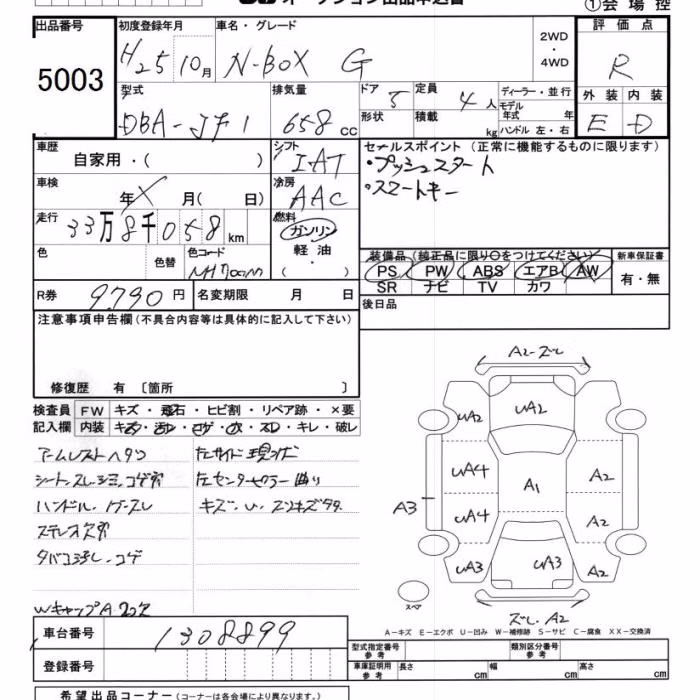 ①会場控
出品番号 初度登録年月 車名・グレード 評価点
5003 H25 10月 N-BOX G 2WD・4WD R
型式 排気量 ドア 定員 ディーラー・並行 外装 内装
DBA-JF1 658cc 5 4人 モデル年式 年 E D
形状 積載 kg ハンドル 左・右
車歴 自家用・( ) シフト IAT セールスポイント(正常に機能するものに限ります)
・プッシュスタート
・スマートキー
車検 年 月( 日) 冷房 AAC
走行 33万8千058km 燃料 ガソリン 軽油・( )
色 色替 色コード 装備品(純正品に限り○をつけてください) 新車保証書
PS PW ABS エアB AW 有・無
SR ナビ TV カワ
R券 9790円 名変期限 月 日 後日品
注意事項申告欄(不具合内容等は具体的に記入して下さい)
修復歴 有〔箇所 〕
検査員 FW キズ・飛石・ヒビ割・リペア跡・×要
記入欄 内装 キズ・汚レ・コゲ・穴・スレ・キレ・破レ
シートスレシミコゲ穴
ハンドル・
キズ・U・
WキャップA
A2-ズレ
UA2 UA2
UA4 A1 A2
A3 UA4 A2
UA3 UA3 A2
スペア ズレ.A2
A-キズ E-エクボ U-凹み W-補修跡 S-サビ C-腐食 XX-交換済
車台番号 1308899
型式指定番号 参考 類別区分番号 参考
登録番号 車庫証明用 参考 長さ cm 幅 cm 高さ cm
希望出品コーナー(コーナーは各会場により異なります。)